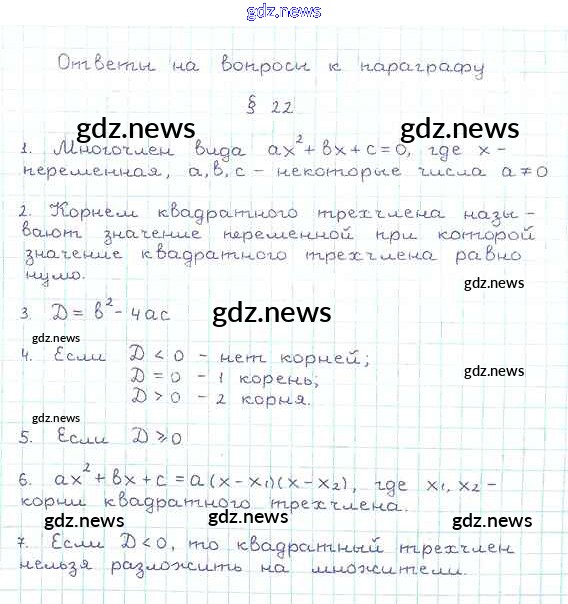 gdz.news
Ответы на вопросы к параграфу
§ 22
gdz.news gdz.news
1. Многочлен вида ax² + bx + c = 0, где x -
переменная, a, b, c - некоторые числа a ≠ 0
2. Корнем квадратного трехчлена назы -
вают значение переменной при которой
значение квадратного трехчлена равно
нулю. gdz.news
3. D = b² - 4ac gdz.news
gdz.news
4. Если D < 0 - нет корней;
gdz.news
D = 0 - 1 корень;
D > 0 - 2 корня.
gdz.news
5. Если D ⩾ 0
6. ax² + bx + c = a (x - x₁)(x - x₂), где x₁, x₂ -
корни квадратного трехчлена.
gdz.news gdz.news gdz.news
7. Если D < 0, то квадратный трехчлен
нельзя разложить на множители.